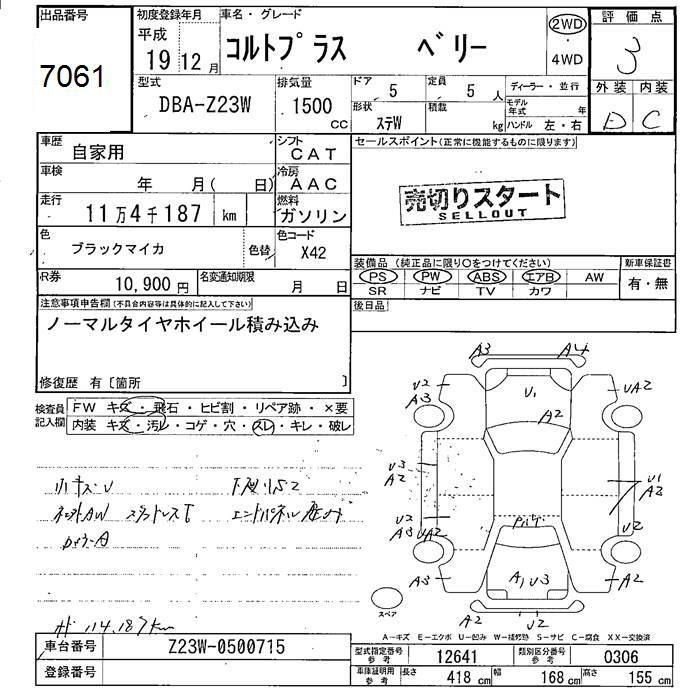 出品番号
7061
初度登録年月
平成
19 12 月
車名・グレード
コルトプラス ベリー
2WD
4WD
評価点
3
外装 内装
D C
型式
DBA-Z23W
排気量
1500
CC
ドア
5
定員
5 人
形状
ステW
積載
kg
ディーラー・並行
モデル年式 年
ハンドル 左・右
車歴
自家用
シフト
CAT
車検
年 月( 日)
冷房
AAC
走行
11万4千187 km
燃料
ガソリン
色
ブラックマイカ
色替
色コード
X42
R券
10,900 円
名変通知期限
月 日
セールスポイント(正常に機能するものに限ります)
売切りスタート
SELLOUT
装備品(純正品に限り○をつけてください)
PS PW ABS エアB AW
SR ナビ TV カワ
新車保証書
有・無
後日品
注意事項申告欄(不具合内容等は具体的に記入して下さい)
ノーマルタイヤホイール積み込み
修復歴 有〔箇所 〕
検査員記入欄
FW キズ・飛石・ヒビ割・リペア跡・×要
内装 キズ・汚レ・コゲ・穴・スレ・キレ・破レ
小キズ・U
下廻りサビ
社外AW スタットレスT
114,187km
A3 A4
U2
A3
U1
A2
UA2
U3
A2
U1
A2
U2
UA2
U2
A3
A1 U3
A2
スペア
A2
U2
A−キズ E−エクボ U−凹み W−補修跡 S−サビ C−腐食 XX−交換済
車台番号
Z23W-0500715
登録番号
型式指定番号
参考
12641
類別区分番号
参考
0306
車庫証明用
参考
長さ
418 cm
幅
168 cm
高さ
155 cm